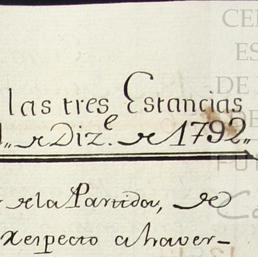 las tres Estancias
de Diz.e de 1792,,
de la Partida, de
respecto a haver-
CE
ES
DE
DE
FU
Ca